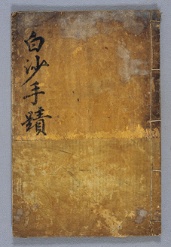 白沙手蹟